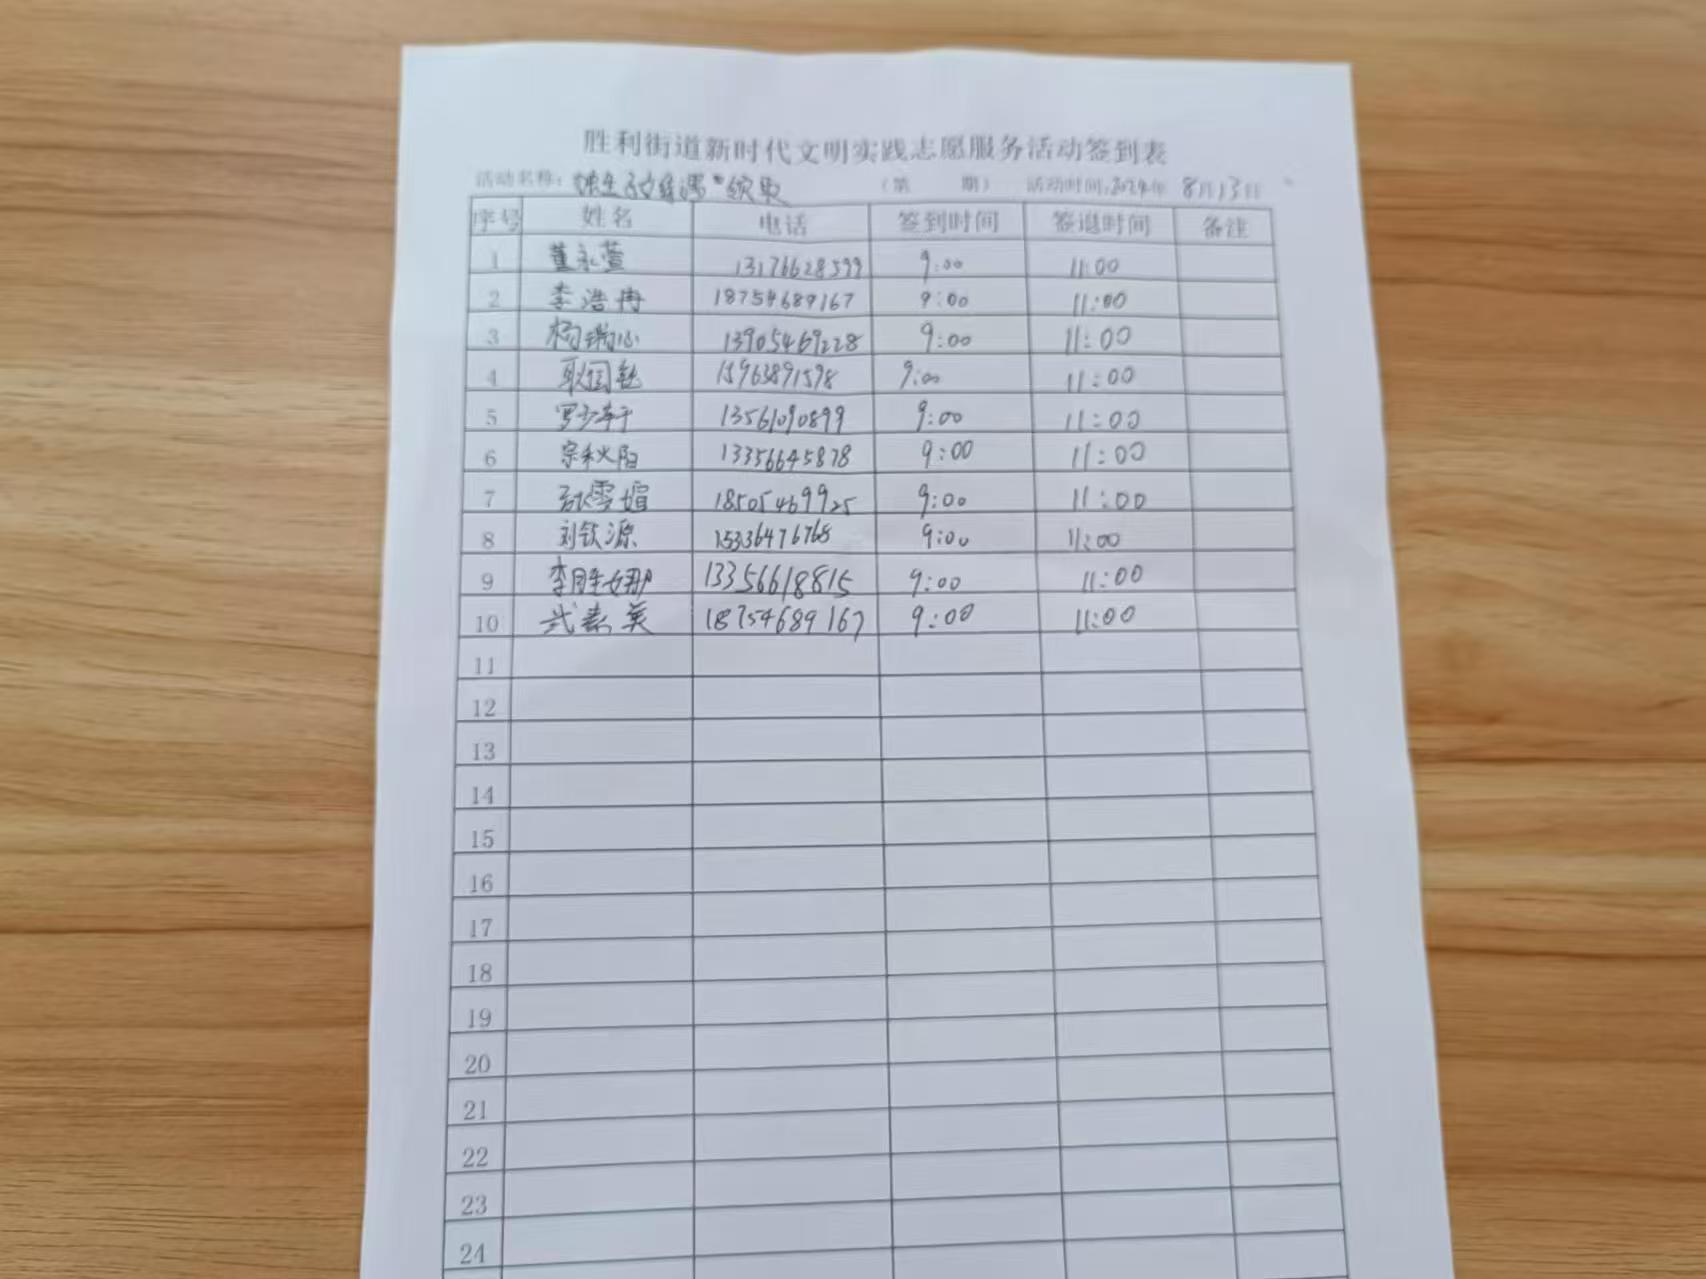 胜利街道新时代文明实践志愿服务活动签到表
活动名称: (第 期) 活动时间:2024年 8月13日
序号 姓名 电话 签到时间 签退时间 备注
1 董永萱 13176628599 9:00 11:00
2 李浩冉 18754689167 9:00 11:00
3 杨瑞心 13905469228 9:00 11:00
4 15963891598 9:00 11:00
5 罗少轩 13561090899 9:00 11:00
6 宗秋阳 13356645878 9:00 11:00
7 18505469925 9:00 11:00
8 刘钦源 15336476768 9:00 11:00
9 李胜娜 13356618815 9:00 11:00
10 武素英 18754689167 9:00 11:00
11
12
13
14
15
16
17
18
19
20
21
22
23
24